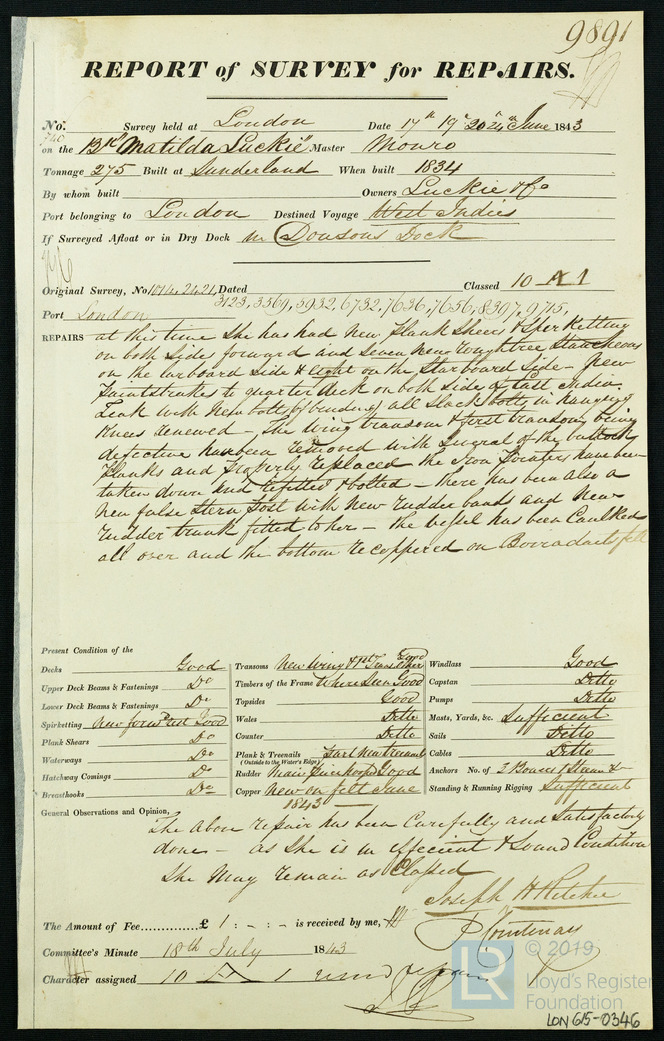 9891
REPORT of SURVEY for REPAIRS.
No. 740 Survey held at London Date 17th 19th 20 24th June 1843
on the Bk "Matilda Luckie" Master Monro
Tonnage 275 Built at Sunderland When built 1834
By whom built Owners Luckie & Co
Port belonging to London Destined Voyage West Indies
If Surveyed Afloat or in Dry Dock in Dowsons Dock
Original Survey, No 1014, 2421, Dated Classed 10 A 1
3123, 3569, 5932, 6732, 7636, 7656, 8397, 9715,
Port London
REPAIRS at this time She has had New Plank Sheers & Spirketting
on both Sides forward and Seven New Roughtree Stancheons
on the larboard Side & eight on the Starboard Side - New
Paintstrakes to quarter deck on both Side of East India
Teak with New bolts, all Slack bolts in hanging
Knees renewed - The Wing transom & first transom being
defective have been removed with Several of the buttock
Planks and Properly replaced the Iron have been
taken down and refitted & bolted - there has been also a
New false Stern Post with New rudder bands and New
rudder trunk fitted to her - the vessel has been Caulked
all over and the bottom recoppered on Borradailes felt
Present Condition of the
Decks Good
Upper Deck Beams & Fastenings Do
Lower Deck Beams & Fastenings Do
Spirketting New forwd rest Good
Plank Shears Do
Waterways Do
Hatchway Comings Do
Breasthooks Do
Transoms New Wing & 1st Trans other Good
Timbers of the Frame Where Seen Good
Topsides Good
Wales Ditto
Counter Ditto
Plank & Treenails
(Outside to the Water's Edge)
Rudder Main Good
Copper New on felt June
1843
Windlass Good
Capstan Ditto
Pumps Ditto
Masts, Yards, &c. Sufficient
Sails Ditto
Cables Ditto
Anchors No. of 3 Bowers Stream &
Standing & Running Rigging Sufficient
General Observations and Opinion,
The above repair has been Carefully and Satisfactorily
done - as She is in efficient & Sound Condition
She May remain as Classed
Joseph H Ritchie
The Amount of Fee £ 1 : - : - is received by me,
P Courtenay
Committee's Minute 18th July 1843
Character assigned 10 A 1
© 2019
LR
Lloyd's Register
Foundation
LON 615-0346